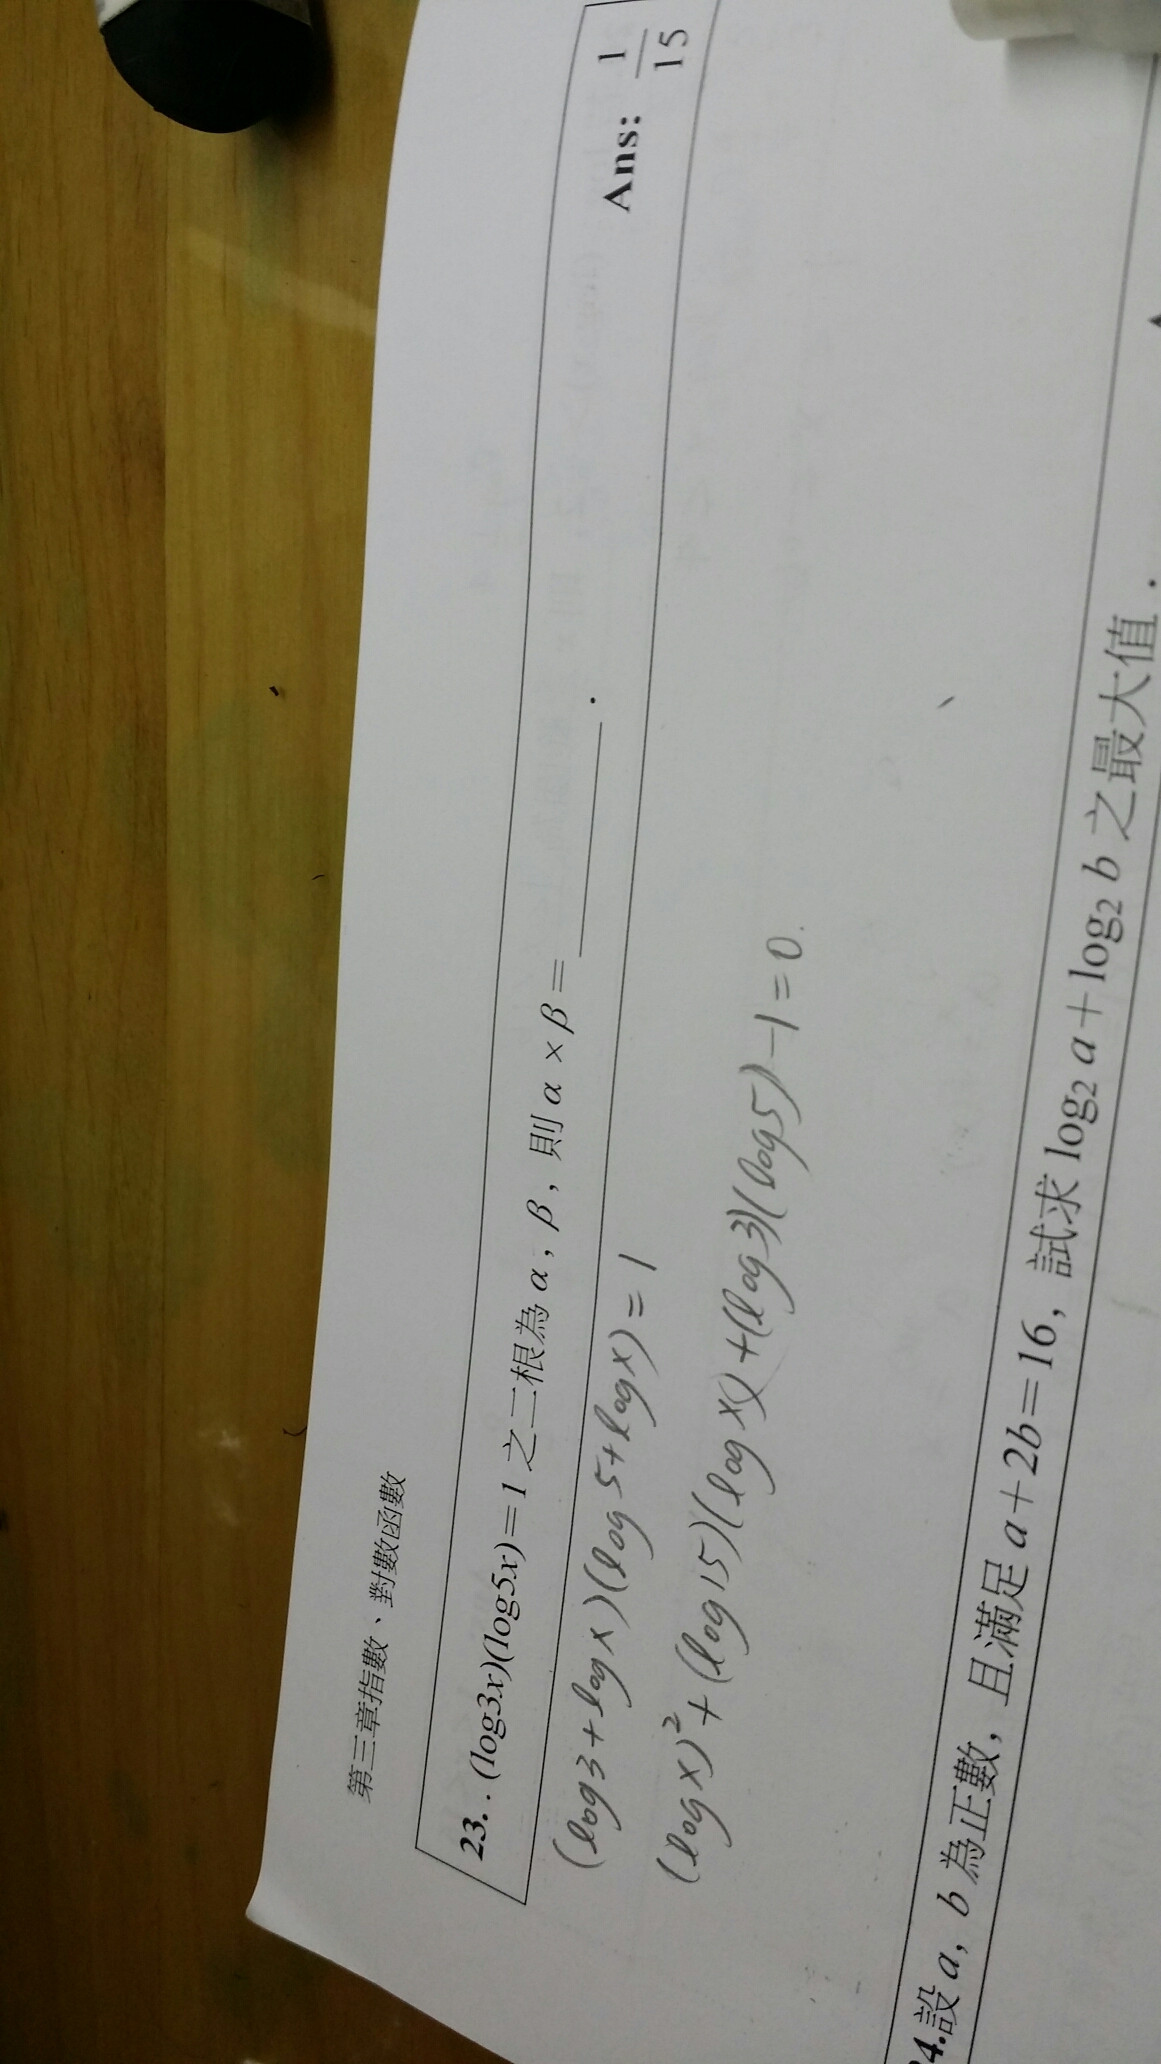 第三章指數、對數函數
23. . (log3x)(log5x)=1 之二根為 α,β,則 α × β = ________ . Ans: 1/15
(log3+logx)(log5+logx)=1
(logx)²+(log15)(logx)+(log3)(log5)-1=0.
4.設 a,b 為正數,且滿足 a+2b=16,試求 log₂ a+log₂ b 之最大值.